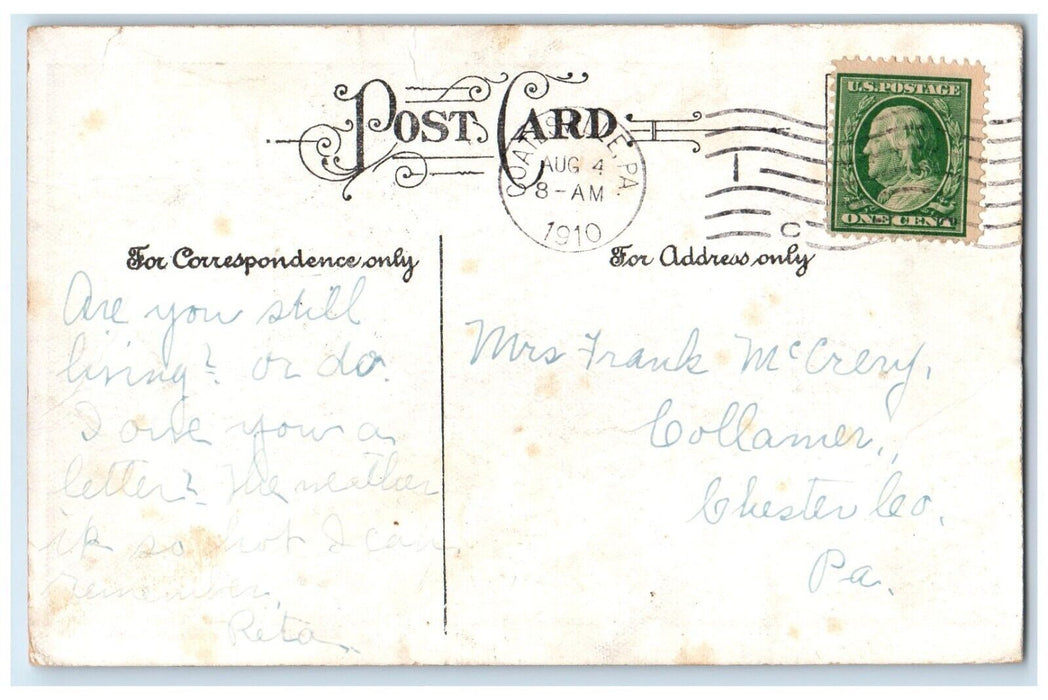 POST CARD
COATESVILLE, PA.
AUG 4
8-AM
1910
1
C
U.S. POSTAGE
ONE CENT
For Correspondence only
For Address only
Are you still
living? or do
I owe you a
letter? The weather
is so hot I can
remember.
Reta.
Mrs Frank McCrery,
Collamer,
Chester Co.
Pa.